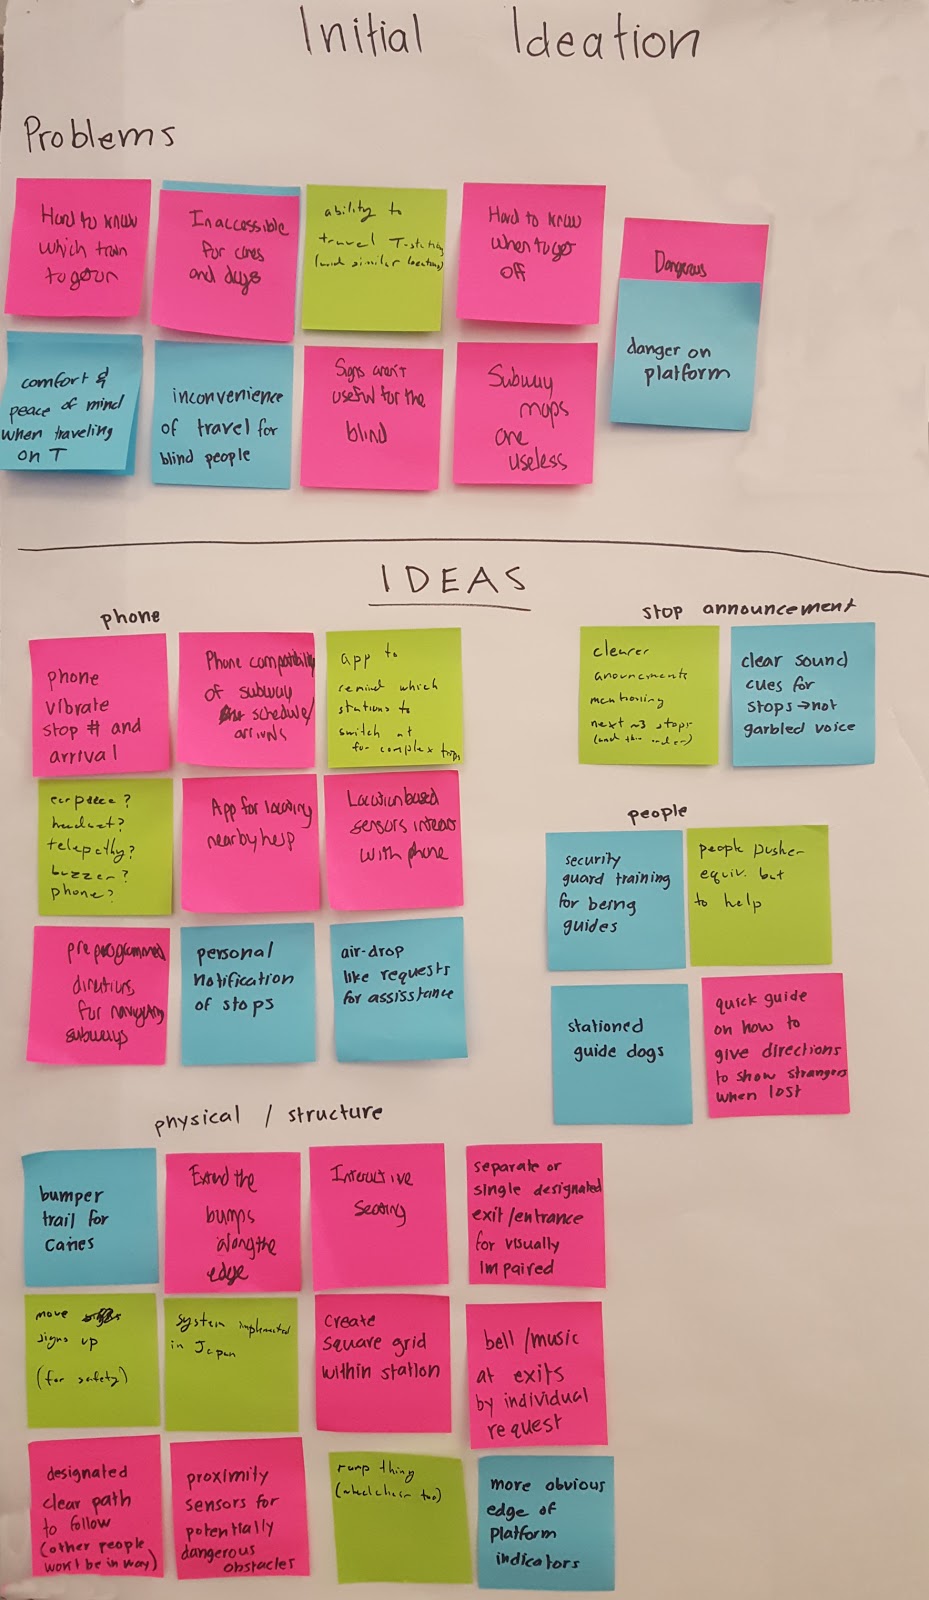 Initial Ideation
Problems
Hard to know
which train
to go on
Inaccessible
for canes
and dogs
ability to
travel T-stations
(and similar locations)
Hard to know
when to get
off
Dangerous
danger on
platform
comfort &
peace of mind
when traveling
on T
inconvenience
of travel for
blind people
Signs aren't
useful for the
blind
Subway
maps
are
useless
IDEAS
phone
phone
vibrate
stop # and
arrival
Phone compatibility
of subway
schedule/
arrivals
app to
remind which
stations to
switch at
for complex trips
earpiece?
headset?
telepathy?
buzzer?
phone?
App for locating
nearby help
Location based
sensors interact
with phone
preprogrammed
directions
for navigating
subways
personal
notification
of stops
air-drop
like requests
for assisstance
stop announcement
clearer
anouncements
mentioning
next ~3 stops
(and their order)
clear sound
cues for
stops → not
garbled voice
people
security
guard training
for being
guides
people pusher
equiv. but
to help
stationed
guide dogs
quick guide
on how to
give directions
to show strangers
when lost
physical / structure
bumper
trail for
canes
Extend the
bumps
along the
edge
Interactive
Seating
separate or
single designated
exit/entrance
for visually
impaired
move
signs up
(for safety)
system implemented
in Japan
create
square grid
within station
bell/music
at exits
by individual
request
designated
clear path
to follow
(other people
won't be in way)
proximity
sensors for
potentially
dangerous
obstacles
ramp thing
(wheelchair too)
more obvious
edge of
platform
indicators